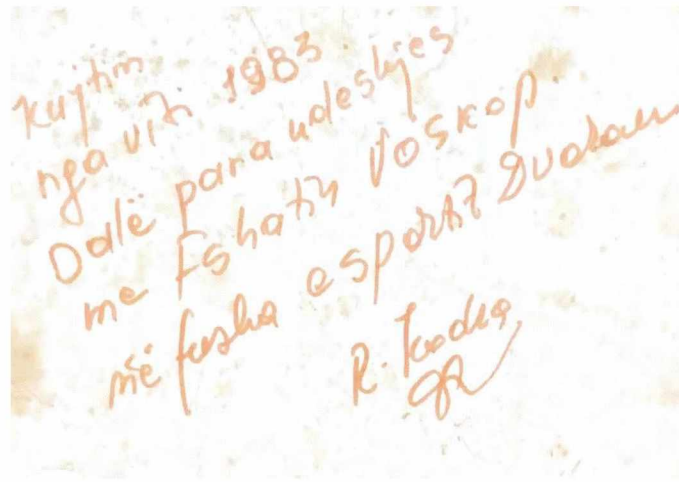 Kujtim
nga viti 1983
Dalë para ndeshjes
me Fshatin Voskop.
në fusha e sportit Dvoran
R. Kodra